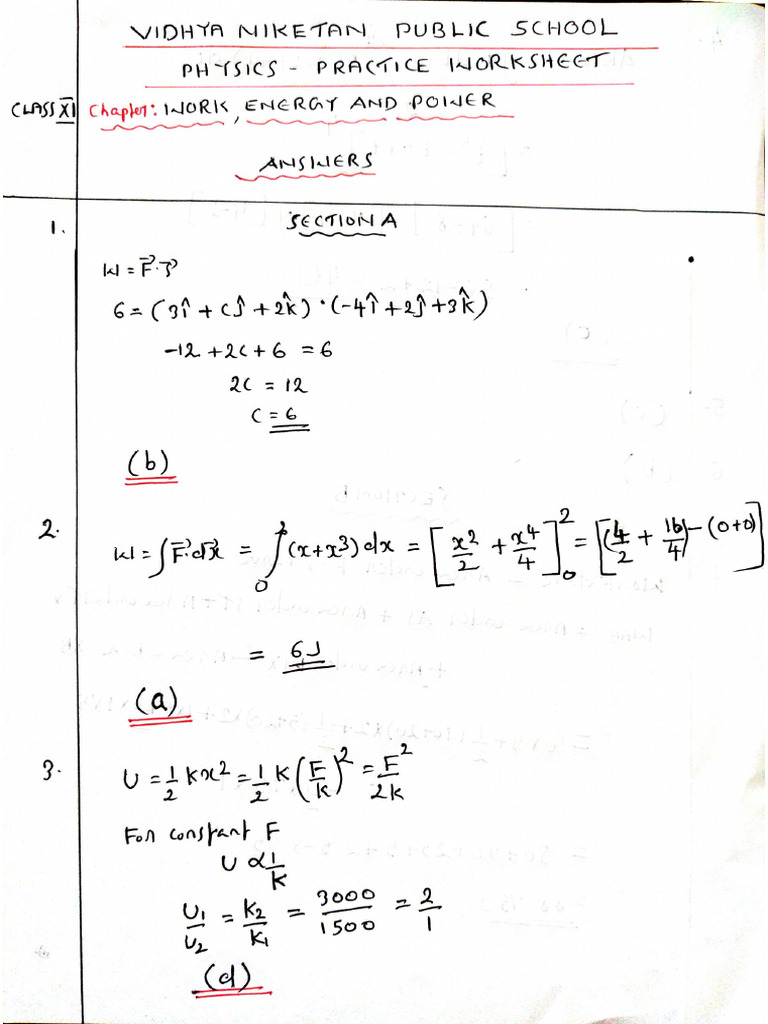 VIDHYA NIKETAN PUBLIC SCHOOL
PHYSICS - PRACTICE WORKSHEET
CLASS XI Chapter: WORK, ENERGY AND POWER
ANSWERS
1. SECTION A
W = F⃗·r⃗
6 = (3î + cĵ + 2k̂)·(-4î + 2ĵ + 3k̂)
-12 + 2c + 6 = 6
2c = 12
c = 6
(b)
2. W = ∫F⃗·dx⃗ = ∫₀² (x + x³) dx = [x²/2 + x⁴/4]₀² = [(4/2 + 16/4) - (0+0)]
= 6J
(a)
3. U = 1/2 kx² = 1/2 K (F/k)² = F²/2k
For constant F
U ∝ 1/K
U₁/U₂ = K₂/K₁ = 3000/1500 = 2/1
(d)